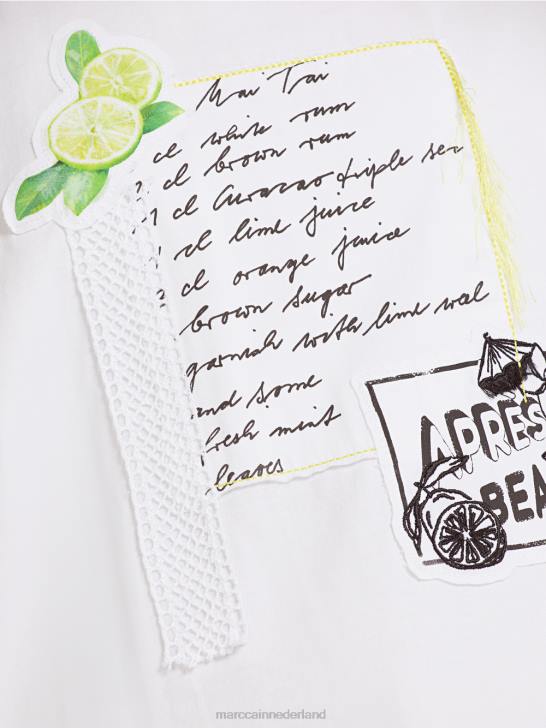 Mai Tai
cl white rum
cl brown rum
1 cl Curacao triple sec
cl lime juice
cl orange juice
brown sugar
garnish with lime weel
and some
fresh mint
leaves
APRES
BEA
marccainnederland